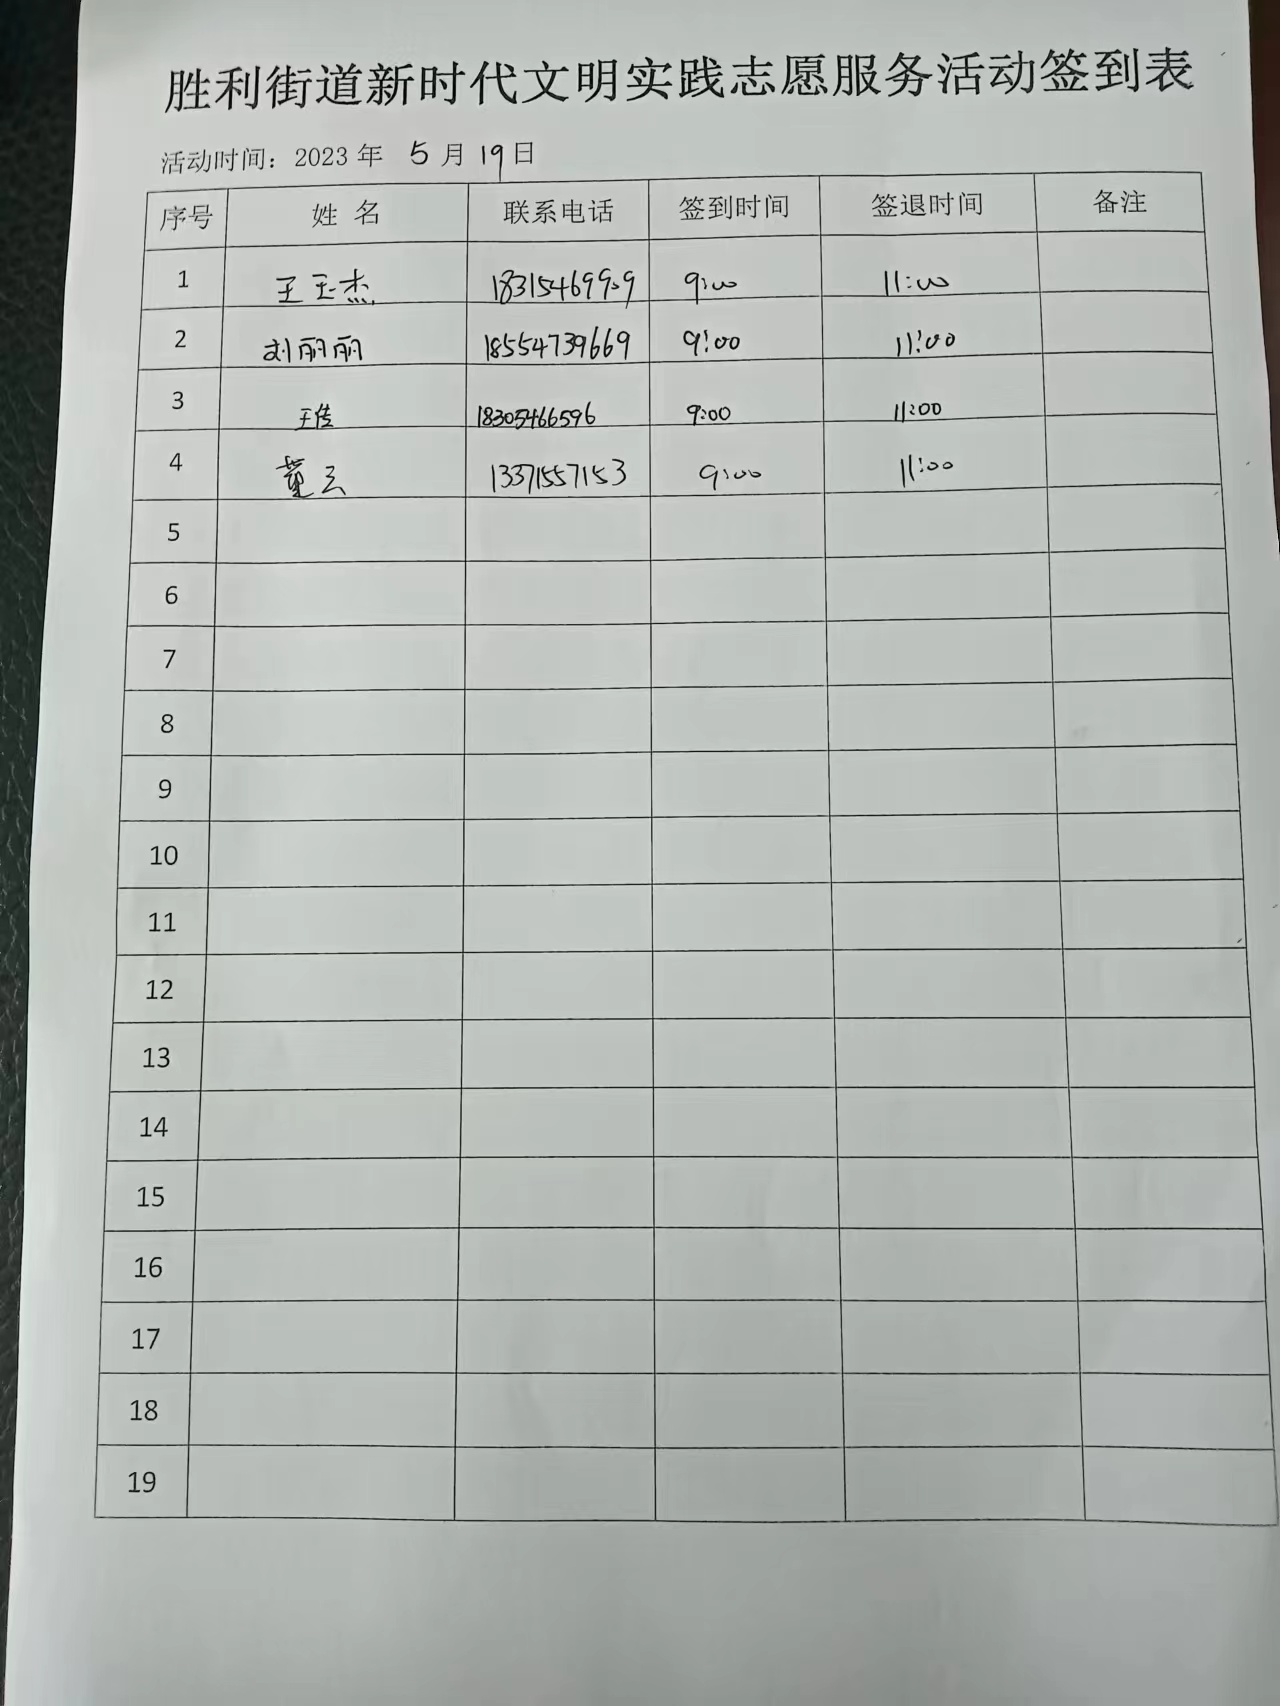 胜利街道新时代文明实践志愿服务活动签到表
活动时间：2023年 5月19日
序号 姓名 联系电话 签到时间 签退时间 备注
1 王玉杰 18315469909 9:00 11:00
2 刘丽丽 18554739669 9:00 11:00
3 王 18305466596 9:00 11:00
4 董云 13371557153 9:00 11:00
5
6
7
8
9
10
11
12
13
14
15
16
17
18
19